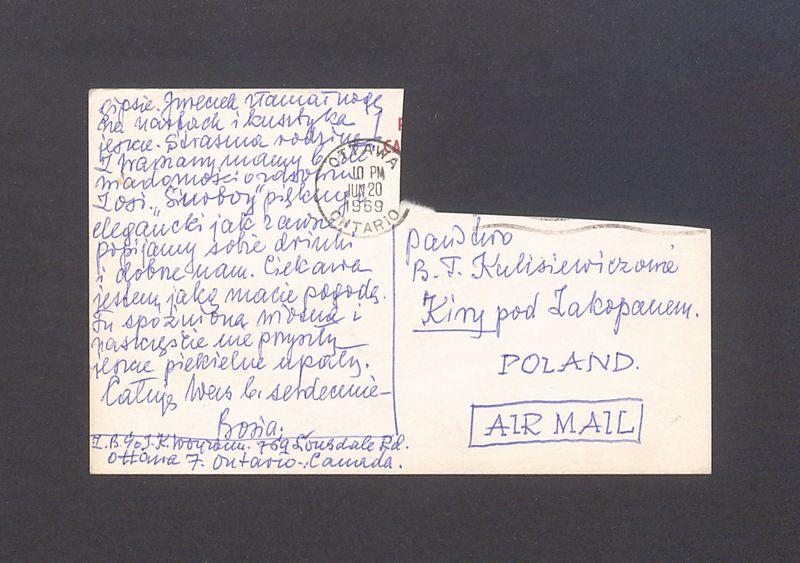 gipsie. Jureczek złamał nogę
na nartach i kuśtyka
jeszcze. Straszna rodzina!
Z Warszawy mamy b. złe
wiadomości o zdrowiu
Zosi. "Snoboy" piękny,
elegancki jak zawsze,
popijamy sobie drinki
i dobrze nam. Ciekawa
jestem jaką macie pogodę.
Tu spóźniona wiosna i
na szczęście nie przyszły
jeszcze piekielne upały.
Całuję Was b. serdecznie –
Bosia.
I.B. c/o J.K. 769 Lonsdale Rd.
Ottawa 7. Ontario. Canada.
CA
OTTAWA
10 PM
JUN 20
1969
ONTARIO
Państwo
B. T. Kulisiewiczowie
Kiry pod Zakopanem.
POLAND.
AIR MAIL